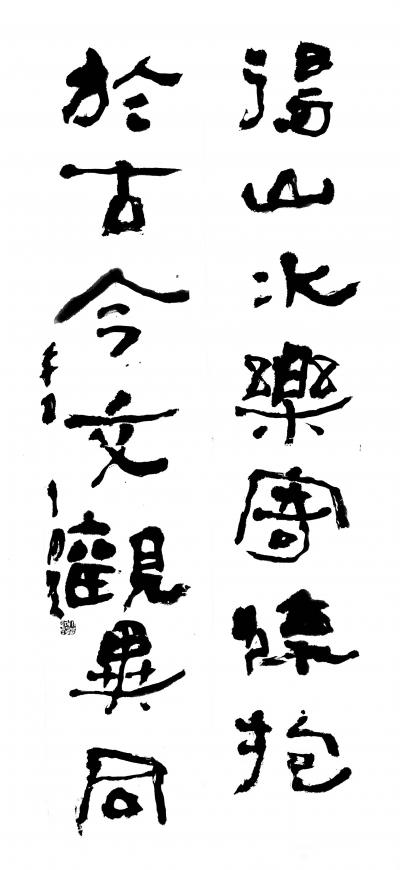 得山水樂寄懷抱
於古今文觀異同